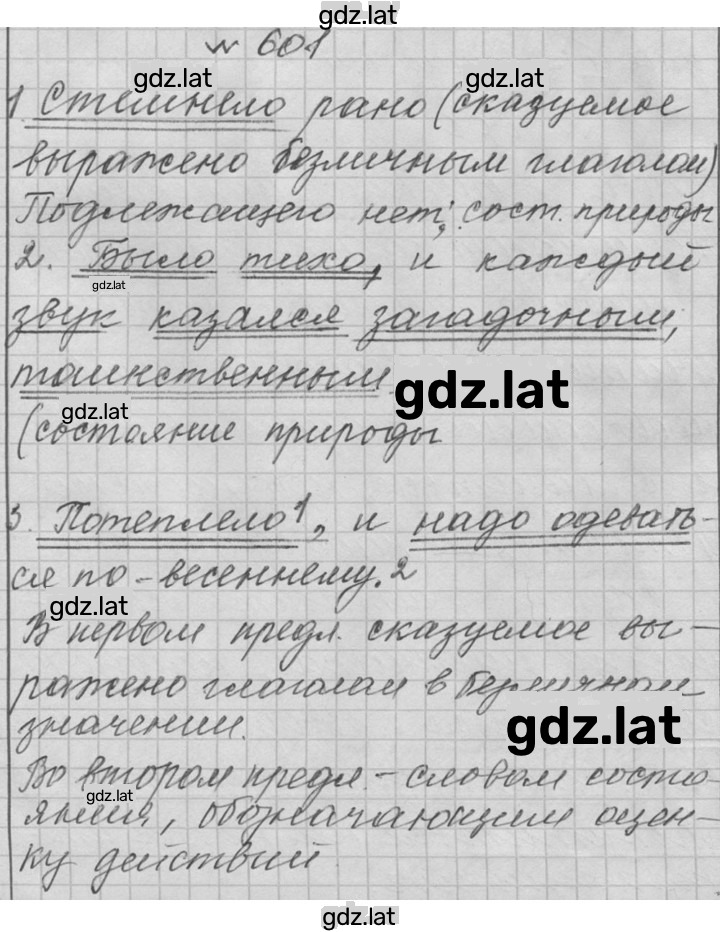 gdz.lat
№ 601
gdz.lat
1. Стемнело рано (сказуемое
выражено безличным глаголом)
Подлежащего нет; сост. природы
2. Было тихо, и каждый
gdz.lat
звук казался загадочным,
таинственным
gdz.lat
gdz.lat
(состояние природы
3. Потеплело¹, и надо одевать-
ся по-весеннему.2
gdz.lat
В первом предл. сказуемое вы-
ражено глаголом в безличном
gdz.lat
значении.
Во втором предл. - словом состо-
gdz.lat
яния, обозначающим оцен-
ку действий
gdz.lat